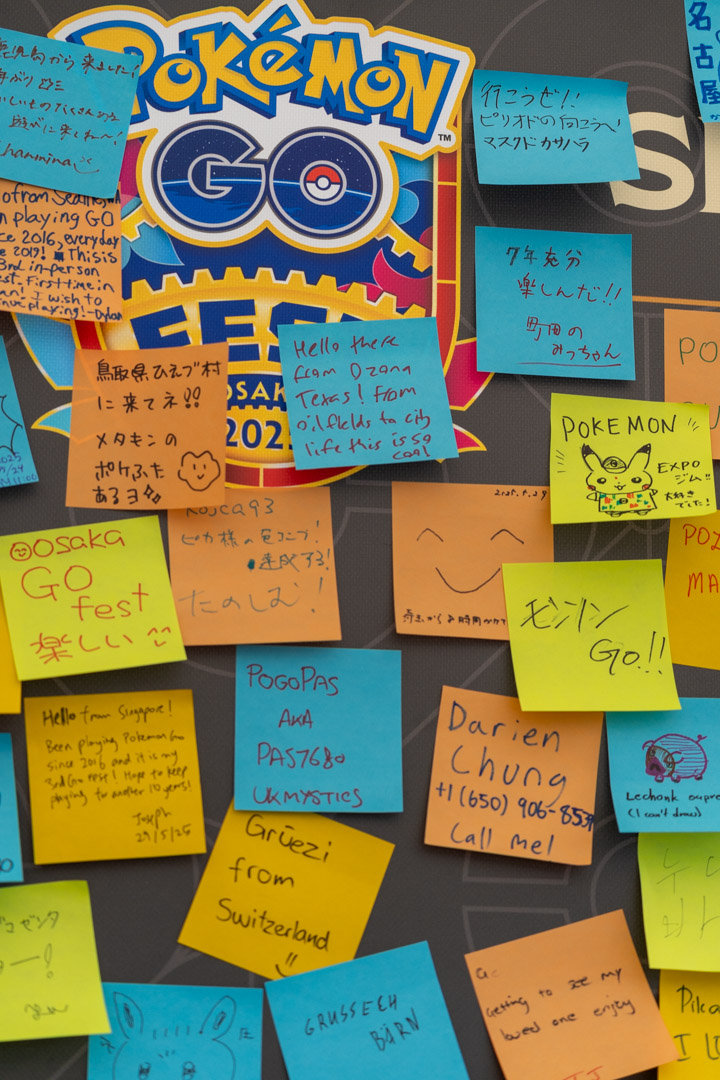 Pokémon
TM
GO
FEST
OSAKA
から来ました!
hanmina
from Seattle
n playing GO
ce 2016, everyday
ce 2019! This is
3rd in-person
est. First time in
an! I wish to
nue playing! -Dylan
行こうぜ!!
ピリオドの向こうへ!
マスクド カサハラ
名古屋
7年充分
楽しんだ!!
町田の
みっちゃん
鳥取県ひえづ村
に来てネ!!
メタキンの
ポケふた
あるヨ
Hello there
from Ozona
Texas! From
oilfields to city
life this is so
cool
PO
POKEMON
EXPO
ジム!!
大好き
でした!
OSAKA
GO
fest
楽しい
Kojca93
ピカ様の色コンプ!
達成する!
たのしむ!
2025.5.29
モンハン
GO!!
PO
MA
Hello from Singapore!
Been playing Pokemon Go
since 2016 and it is my
3rd Go Fest! Hope to keep
playing for another 10 years!
Joseph
29/5/25
POGOPAS
AKA
PAS7680
UKMYSTICS
Darien
Chung
+1 (650) 906-8539
Call me!
Lechonk supre
(I can't draw)
Grüezi
from
Switzerland
GRUSSECH
BÄRN
Getting to see my
loved one enjoy
Pika
I LO